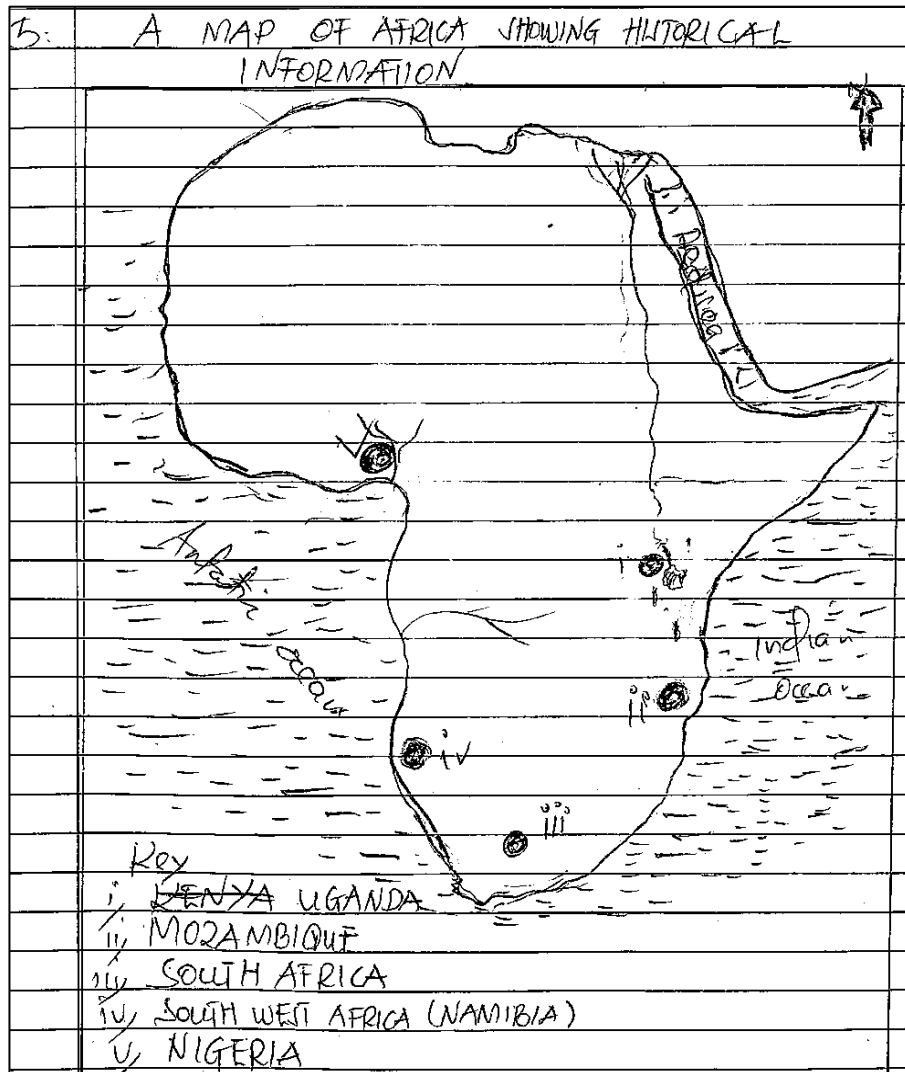 5: A MAP OF AFRICA SHOWING HISTORICAL
INFORMATION
N
Red Sea
V
i
Atlantic
Ocean
Indian
Ocean
ii
iv
iii
Key
i, KENYA UGANDA
ii, MOZAMBIQUE
iii, SOUTH AFRICA
iv, SOUTH WEST AFRICA (NAMIBIA)
v, NIGERIA